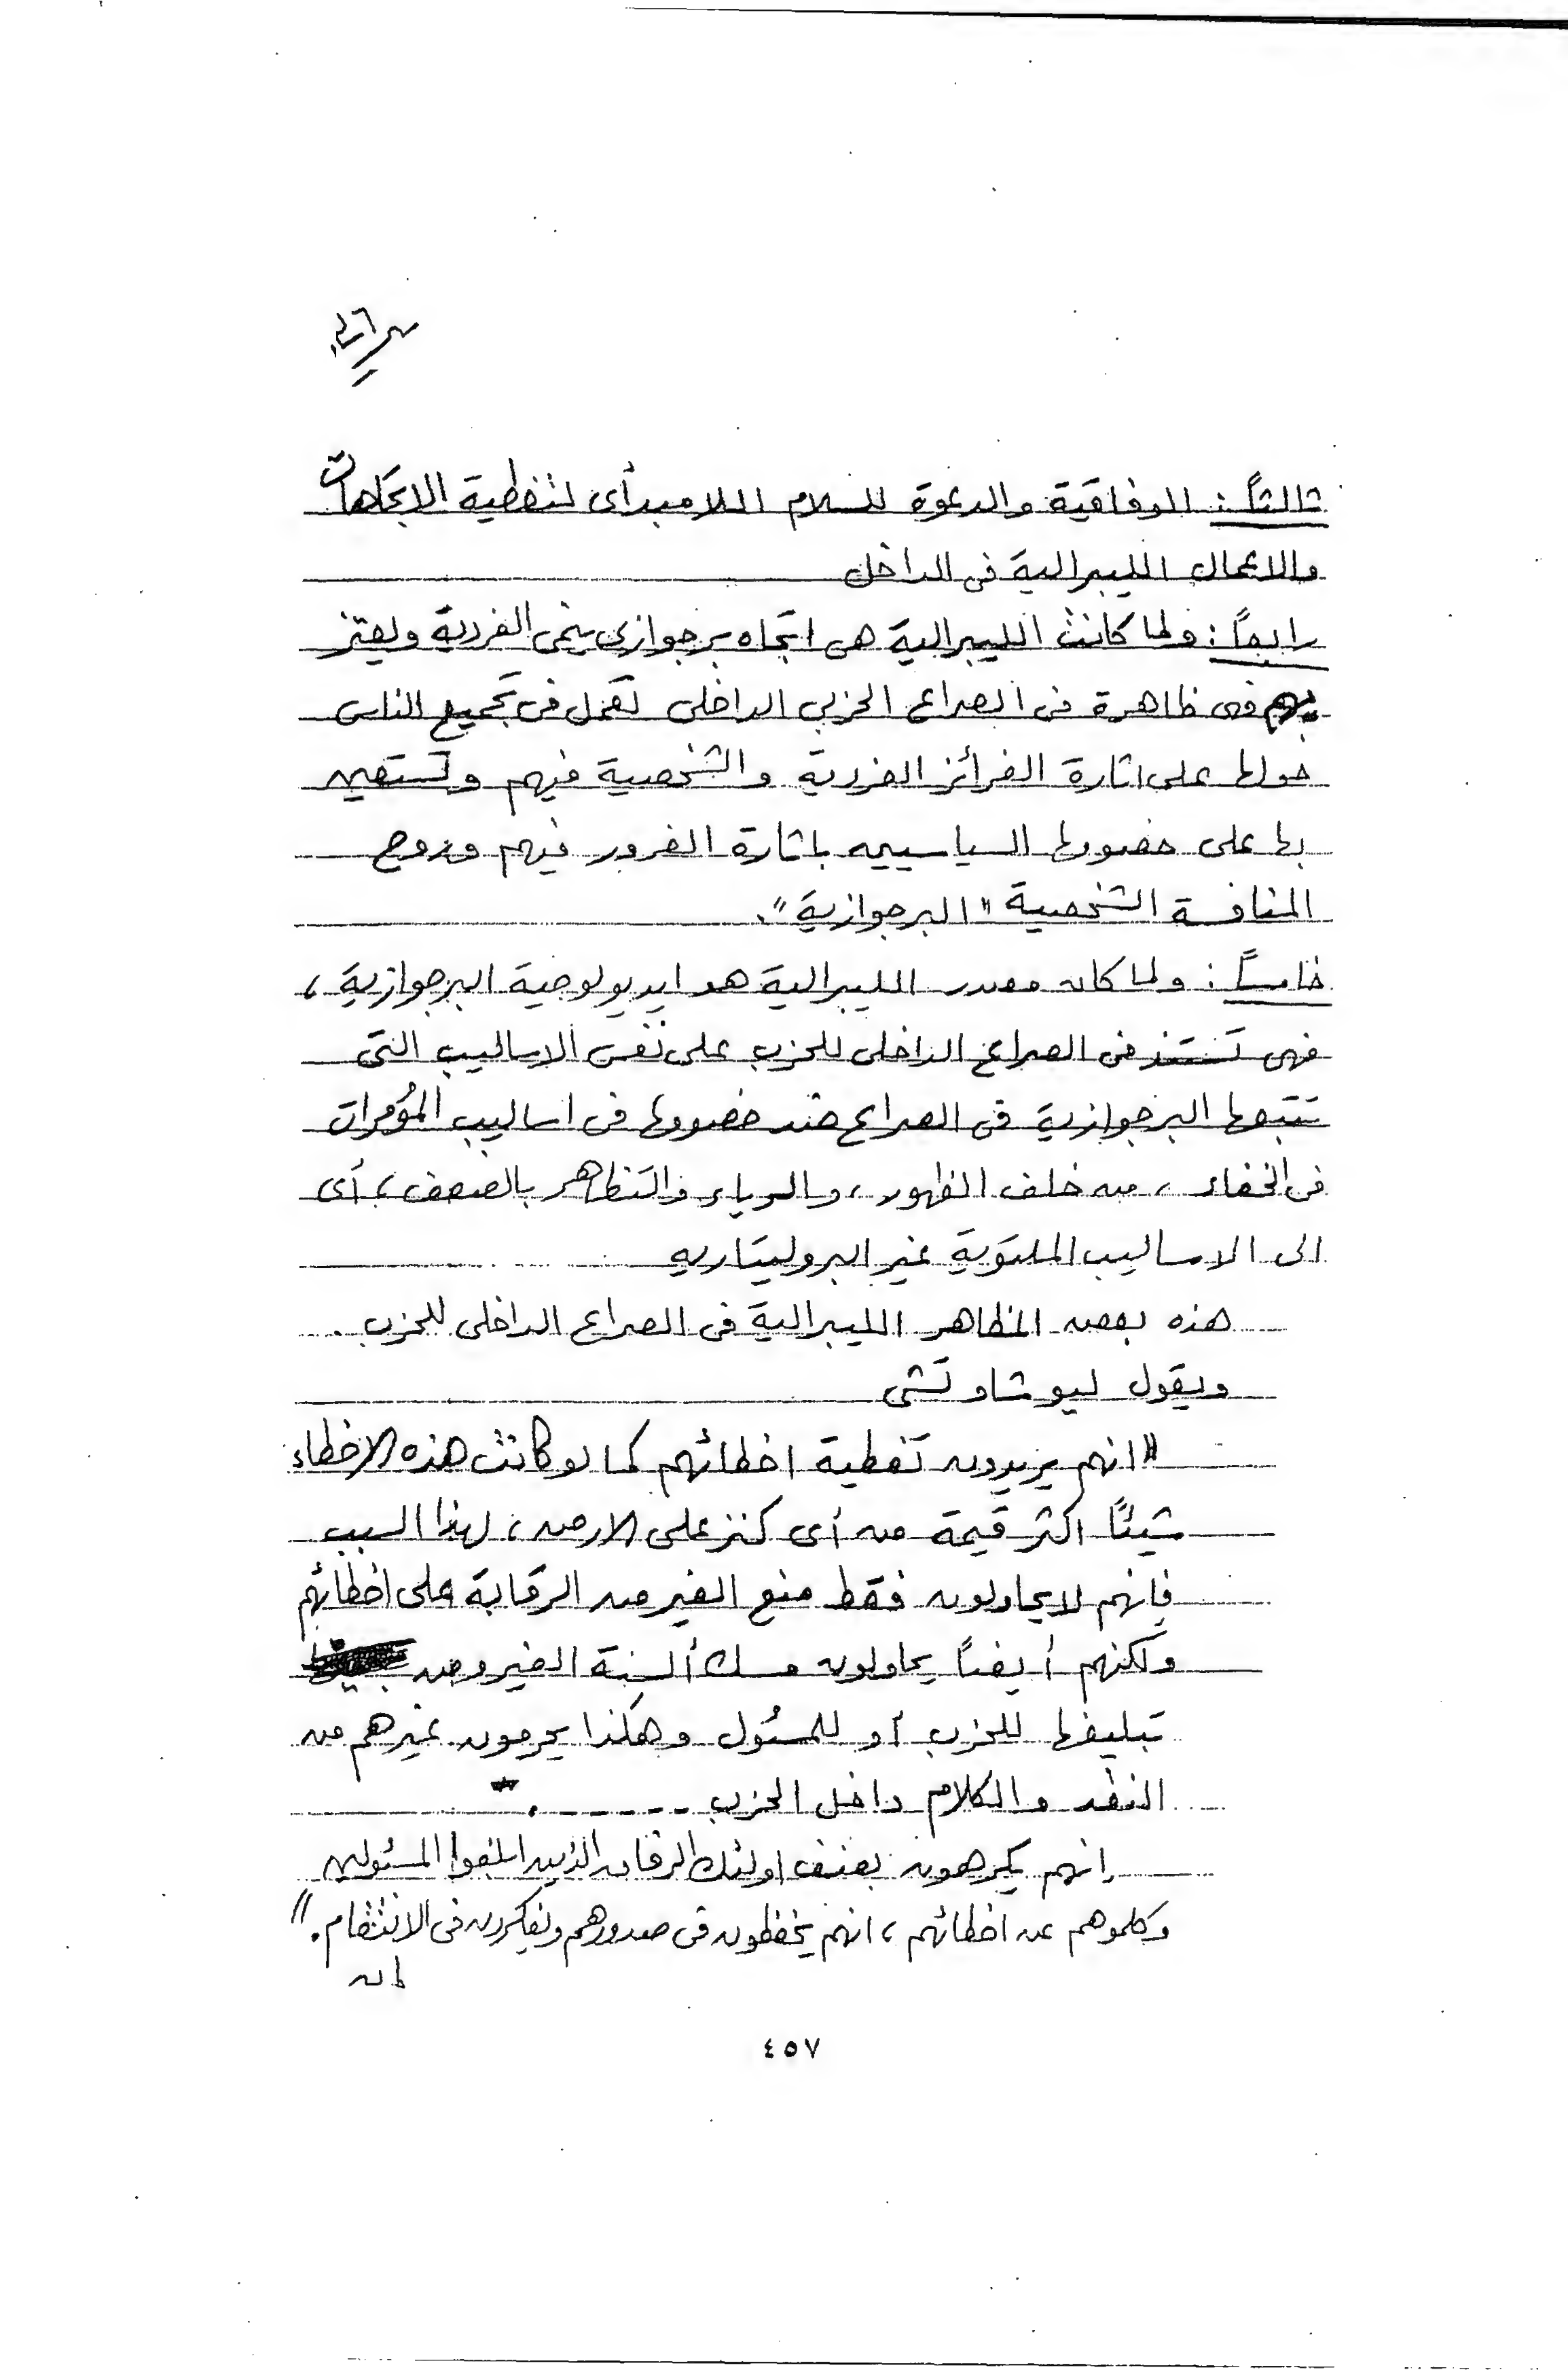 ثالثاً : الوفاقية والدعوة للسلام اللامبدأى لتغطية الاتجاهات
والاعمال الليبرالية فى الداخل
رابعاً : ولما كانت الليبرالية هى اتجاه برجوازى ينمى الفردية ويعتز
بهم فهى ظاهرة فى الصراع الحزبى الداخلى تعمل فى تجميع الناس
حولها على اثارة الغرائز الفردية والشخصية فيهم وتستعين
بها على خصومها السياسيين باثارة الغرور فيهم وروح
المنافسة الشخصية "البرجوازية".
خامساً : ولما كان مصدر الليبرالية هو ايديولوجية البرجوازية ،
فهى تستند فى الصراع الداخلى للحزب على نفس الاساليب التى
تتبعها البرجوازية فى الصراع ضد خصومها فى اساليب المؤمرات
فى الخفاء ، من خلف الظهور ، والرياء والتظاهر بالضعف ، أى
الى الاساليب الملتوية غير البروليتاريه
هذه بعض المظاهر الليبرالية فى الصراع الداخلى للحزب .
ويقول ليو شاو تشى
"انهم يريدون تغطية اخطائهم كما لو كانت هذه الاخطاء
شيئاً اكثر قيمة من أى كنز على الارض ، لهذا السبب
فإنهم لا يحاولون فقط منع الغير من الرقابة على اخطائهم
ولكنهم أيضاً يحاولون مسك ألسنة الغير ومن
تبليغها للحزب أو للمسئول وهكذا يحرمون غيرهم من
النقد والكلام داخل الحزب - - - - - - . *
إنهم يكرهون بعنف اولئك الرفاق الذين ابلغوا المسئولين
وكلموهم عن اخطائهم ، انهم يحفظون فى صدورهم ويفكرون فى الانتقام ."
٤٥٧